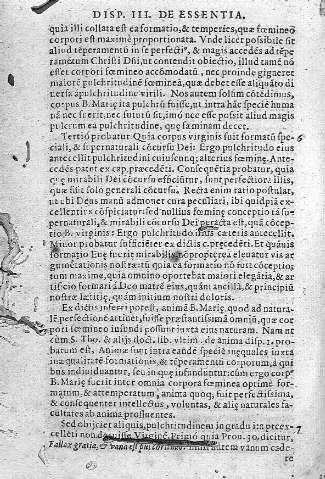 DISP. III. DE ESSENTIA.
quia illi collata est ea formatio, & temperies, quæ fœmineo
corpori est maximè proportionata. Vnde licet possibile sit
aliud téperamentú in se perfectiꝰ, & magis accedés ad tépe
ramétum Christi Dñi, vt contendit obiectio, illud tamé nó
esset corpori fœmineo accómodatú, nec proinde gigneret
maioré pulchritudiné fœmineá, quæ debet esse aliquáto di
uersa á pulchritudine virili. Nos autem solùm cótédimus,
corpus B. Mariæ ita pulchrú fuisse, vt intra hác specié huma
ná nec fuerit, nec futurú sit, imò nec esse possit aliud magis
pulcrum ea pulchritudine, quæ fœminam decet.
Tertiò probatur. Quia corpus virginis fuit formatú spe-
ciali, & supernaturali cócursu Dei: Ergo pulchritudo eius
antecellit pulchritudini cuiuscunq; alterius fœminę. Ante-
cedés patet ex cap. præcedéti. Conseqúetia probatur, quia
quę mirabili Dei cócursu efficiútur, sunt perfectiora illis,
quæ fiút solo generali cócursu. Recta enim ratio postulat,
vt vbi Deus manú admouet cura peculiari, ibi quidpiá ex
cellentiꝰ cóspiciatur: sed nullius fœminę conceptio tá su
pernaturali, & mirabili cócursu Dei peracta est, quá cócep-
tio virginis: Ergo pulchritudo huius cæteris antecellit.
Minor probatur sufficiéter ex dictis c. precedéti. Et quáuis
formatio Euæ fuerit mirabilis, nó propterea eleuatur vis ar
gumétationis nostræ: tú quia ea formatio nó fuit conceptio
tum maximè, quia omnino oportebat maiori elegátia, & ar
tificio formari á Deo matré eius, quám ancillá, & principiú
nostræ lætitię, quám initium nostri doloris.
Ex dictis inferri potest, animá B. Marię, quod ad natura-
lé perfectioné attinet, fuisse præstantissimá omniú, quæ cor
pori fœmineo infundi possunt iuxta eius naturam. Nam vt
cum S. Tho. & alijs doct. lib. vltim. de anima disp. 1. pro-
batum est. Animæ sunt intra eandé specié inequales iuxta
inæqualitaté formationis, & téperamenti corporum, á qui
bus indiuiduantur, seu in quę infunduntur: cùm ergo corpꝰ
B. Marię fuerit inter omnia corpora fœminea optimè for-
matum, & attemperatum, anima quoq; fuit perfectissima,
& consequenter intellectus, voluntas, & alię naturales fa-
cultates ab anima profluentes.
Sed obijciet aliquis, pulchritudinem in gradu ita præex-
cellēti non decuisse Virginē. Primò quia Prou. 30. dicitur,
Fallax gratia, & vana est pulchritudo. autem vanum cade-
re
6
7